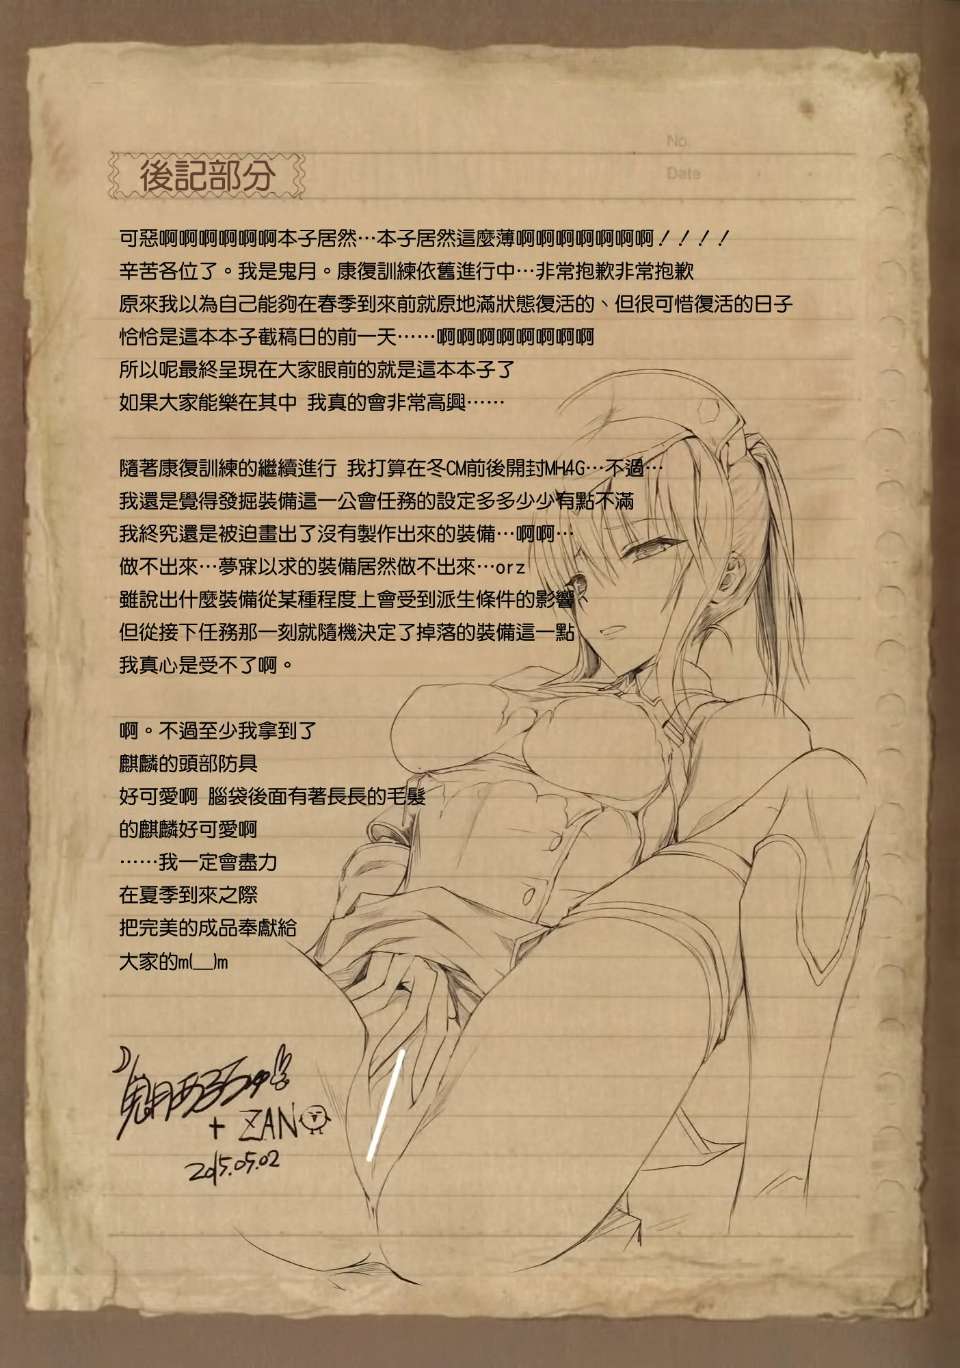 No.
Date
後記部分
可惡啊啊啊啊啊啊本子居然…本子居然這麼薄啊啊啊啊啊啊啊！！！！
辛苦各位了。我是鬼月。康復訓練依舊進行中…非常抱歉非常抱歉
原來我以為自己能夠在春季到來前就原地滿狀態復活的、但很可惜復活的日子
恰恰是這本本子截稿日的前一天……啊啊啊啊啊啊啊啊
所以呢最終呈現在大家眼前的就是這本本子了
如果大家能樂在其中 我真的會非常高興……
隨著康復訓練的繼續進行 我打算在冬CM前後開封MH4G…不過…
我還是覺得發掘裝備這一公會任務的設定多多少少有點不滿
我終究還是被迫畫出了沒有製作出來的裝備…啊啊…
做不出來…夢寐以求的裝備居然做不出來…orz
雖說出什麼裝備從某種程度上會受到派生條件的影響
但從接下任務那一刻就隨機決定了掉落的裝備這一點
我真心是受不了啊。
啊。不過至少我拿到了
麒麟的頭部防具
好可愛啊 腦袋後面有著長長的毛髮
的麒麟好可愛啊
……我一定會盡力
在夏季到來之際
把完美的成品奉獻給
大家的m(__)m
+ ZAN
2015.05.02